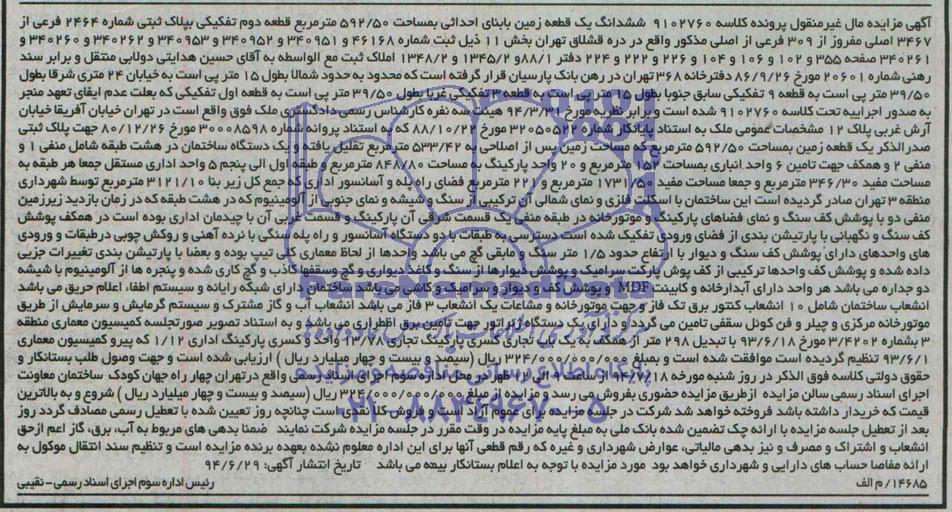 آگهی مزایده مال غیرمنقول پرونده کلاسه ۹۱۰۲۷۶۰ ششدانگ یک قطعه زمین بابنای احداثی بمساحت ۵۹۲/۵۰ مترمربع قطعه دوم تفکیکی بپلاک ثبتی شماره ۲۴۶۴ فرعی از
۳۴۶۷ اصلی مفروز از ۳۰۹ فرعی از اصلی مذکور واقع در دره قشلاق تهران بخش ۱۱ ذیل ثبت شماره ۴۶۱۶۸ و ۳۴۰۹۵۱ و ۳۴۰۹۵۲ و ۳۴۰۹۵۳ و ۳۴۰۲۶۲ و ۳۴۰۲۶۰ و
۳۴۰۲۶۱ صفحه ۳۵۵ و ۱۰۲ و ۱۰۶ و ۱۰۴ و ۲۲۶ و ۲۲۲ و ۲۲۴ دفتر ۸۸/۱ و ۱۳۴۵/۲ و ۱۳۴۸/۲ املاک ثبت مع الواسطه به آقای حسین هدایتی دولابی منتقل و برابر سند
رهنی شماره ۲۰۶۰۱ مورخ ۸۶/۹/۲۶ دفترخانه ۳۶۸ تهران در رهن بانک پارسیان قرار گرفته است که محدود به حدود شمالا بطول ۱۵ متر پی است به خیابان ۲۴ متری شرقا بطول
۳۹/۵۰ متر پی است به قطعه ۹ تفکیکی سابق جنوبا بطول ۱۵ متر پی است به قطعه ۳ تفکیکی غربا بطول ۳۹/۵۰ متر پی است به قطعه اول تفکیکی که بعلت عدم ایفای تعهد منجر
به صدور اجراییه تحت کلاسه ۹۱۰۲۷۶۰ شده است و برابر نظریه مورخ ۹۴/۳/۳۱ هیئت سه نفره کارشناس رسمی دادگستری ملک فوق واقع است در تهران خیابان آفریقا خیابان
آرش غربی پلاک ۱۲ مشخصات عمومی ملک به استناد پایانکار شماره ۳۲۰۵۰۵۲۲ مورخ ۸۸/۱۰/۲۲ که به استناد پروانه شماره ۳۰۰۰۸۵۹۸ مورخ ۸۰/۱۲/۲۶ جهت پلاک ثبتی
صدرالذکر یک قطعه زمین بمساحت ۵۹۲/۵۰ که مساحت زمین پس از اصلاحی به ۵۳۳/۴۲ مترمربع تقلیل یافته، یک دستگاه ساختمان در هشت طبقه شامل منفی ۱ و
منفی ۲ و همکف جهت تامین ۶ واحد انباری بمساحت ۱۵۲ مترمربع و ۲۰ واحد پارکینگ به مساحت ۸۴۸/۸۰ مترمربع و طبقه اول الی پنجم ۵ واحد اداری مستقل جمعا هر طبقه به
مساحت مفید ۳۴۶/۳۰ مترمربع و جمعا مساحت مفید ۱۷۳۱/۵۰ مترمربع و ۲۲۱ مترمربع فضای راه پله و آسانسور اداری که جمع کل زیر بنا ۳۱۲۱/۱۰ مترمربع توسط شهرداری
منطقه ۳ تهران صادر گردیده است این ساختمان با اسکلت فلزی و نمای شمالی آن ترکیبی از سنگ و شیشه و نمای جنوبی از آلومینیوم که در هشت طبقه که در زمان بازدید زیرزمین
منفی دو با پوشش کف سنگ و نمای فضاهای پارکینگ و موتورخانه در طبقه منفی یک قسمت شرقی آن پارکینگ و قسمت غربی آن با چیدمان اداری بوده است در همکف پوشش
کف سنگ و نگهبانی با پارتیشن بندی از فضای ورودی تفکیک شده است دسترسی به طبقات با دو دستگاه آسانسور و راه پله سنگی با نرده آهنی و روکش چوبی درطبقات و ورودی
های واحدهای دارای پوشش کف سنگ و دیوار با ارتفاع حدود ۱/۵ متر سنگ و مابقی گچ می باشد واحدها از لحاظ معماری کلی تیپ بوده و بعضا با پارتیشن بندی تغییرات جزیی
داده شده و پوشش کف واحدها ترکیبی از کف پوش پارکت سرامیک و پوشش دیوارها از سنگ و کاغذ دیواری و گچ وسقفها کاذب و گچ کاری شده و پنجره ها از آلومینیوم با شیشه
دو جداره می باشد هر واحد دارای آبدارخانه و کابینت MDF و پوشش کف و دیوار و سرامیک و کاشی می باشد ساختمان دارای شبکه رایانه و سیستم اطفاء اعلام حریق می باشد
انشعاب ساختمان شامل ۱۰ انشعاب کنتور برق تک فاز و جهت موتورخانه و مشاعات یک انشعاب ۳ فاز می باشد انشعاب آب و گاز مشترک و سیستم گرمایش و سرمایش از طریق
موتورخانه مرکزی و چیلر و فن کوئل سقفی تامین می گردد و دارای یک دستگاه ژنراتور جهت تامین برق اظطراری می باشد و به استناد تصویر صورتجلسه کمیسیون معماری منطقه
۳ بشماره ۳/۴۲۰۲ مورخ ۹۳/۶/۱۸ با تبدیل ۲۹۸ متر از همکف به یک باب تجاری کسری پارکینگ تجاری ۱۳/۷۸ واحد و کسری پارکینگ اداری ۱/۱۲ که پیرو کمیسیون معماری
۹۳/۶/۱ تنظیم گردیده است موافقت شده است و بمبلغ ۳۲۴/۰۰۰/۰۰۰/۰۰۰ ریال (سیصد و بیست و چهار میلیارد ریال) ارزیابی شده است و جهت وصول طلب بستانکار و
حقوق دولتی کلاسه فوق الذکر در روز شنبه مورخه ۹۴/۷/۱۸ از ساعت ۹ الی ۱۲ ظهر در محل اداره سوم اجرای اسناد رسمی واقع درتهران چهار راه جهان کودک ساختمان معاونت
اجرای اسناد رسمی سالن مزایده ازطریق مزایده حضوری بفروش می رسد و مزایده از مبلغ ۳۲۴/۰۰۰/۰۰۰/۰۰۰ ریال (سیصد و بیست و چهار میلیارد ریال) شروع و به بالاترین
قیمت که خریدار داشته باشد فروخته خواهد شد شرکت در جلسه مزایده برای عموم آزاد است و فروش کلا نقدی است چنانچه روز تعیین شده با تعطیل رسمی مصادف گردد روز
بعد از تعطیل جلسه مزایده با ارائه چک تضمین شده بانک ملی به مبلغ پایه مزایده در وقت مقرر در جلسه مزایده شرکت نمایند ضمنا بدهی های مربوط به آب، برق، گاز اعم ازحق
انشعاب و اشتراک و مصرف و نیز بدهی مالیاتی، عوارض شهرداری و غیره که رقم قطعی آنها برای این اداره معلوم نشده بعهده برنده مزایده است و تنظیم سند انتقال موکول به
ارائه مفاصا حساب های دارایی و شهرداری خواهد بود مورد مزایده با توجه به اعلام بستانکار بیمه می باشد تاریخ انتشار آگهی: ۹۴/۶/۲۹
۱۴۶۸۵/م الف رئیس اداره سوم اجرای اسناد رسمی- نقیبی
پایگاه اطلاع رسانی مناقصه و مزایده
۰۲۱-۸۸۳۴۹۶۷۰-۵